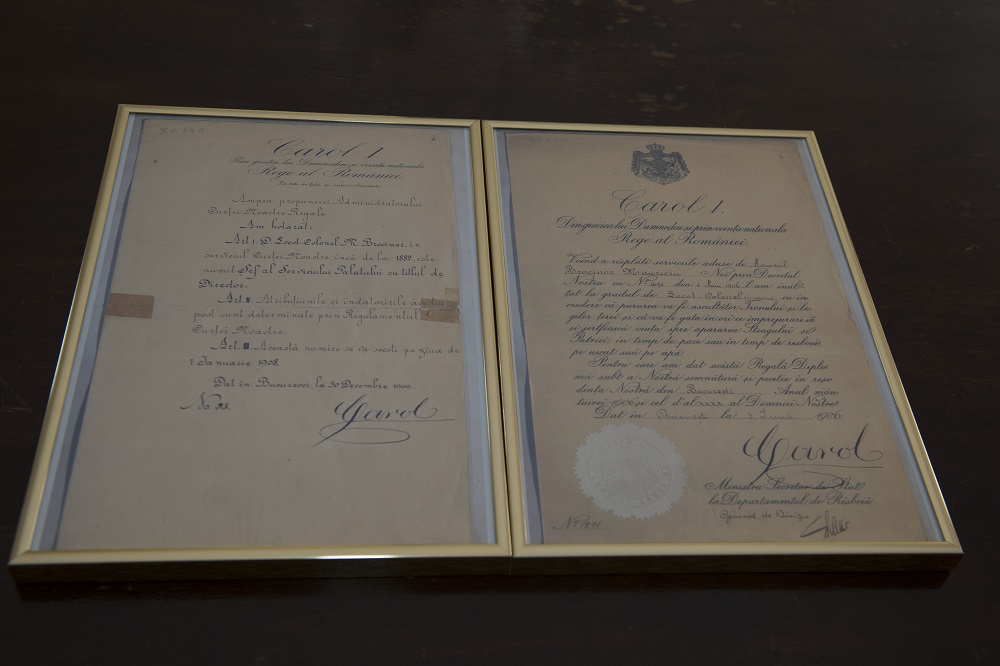 Carol I
Prin gratia lui Dumnedeu și vointa nationala
Rege al României.
La toti de față și viitori sănătate
Asupra propunerei Administratorului
Curței Noastre Regale.
Am hotărât:
Art I. D. Locot.-Colonel M. Brociner, in
serviciul Curței Noastre încă de la 1882, este
numit Șef al Serviciului Palatului cu titlul de
Director.
Art II. Atribuțiunile și îndatoririle acestui
post sunt determinate prin Regulamentul
Curței Noastre.
Art. III Această numire se va socoti pe ziua de
1 Ianuarie
Dat in Bucuresci, la 30 Decembrie
No
Carol
Carol I.
Din gracia lui Dumnedeu și prin vointa națională
Rege al României.
Voind a resplăti serviciele aduse de Maiorul
Brociner Mauriciu Noi prin Decretul
Nostru cu No din 1906 l am inăl
țat la gradul de Locot Colonel cu in
credere că pururea va fi ascultător Tronului și le
gilor țerii și că va fi gata in ori ce împregiurare să
și jertfească viața spre apărarea Stégului și
Patriei in timp de pace sau in timp de resboiu
pe uscat sau pe apă
Pentru care am dat acéstă Regală Diplo
mă subt a Nóstră semnătură și pecetie in rese
dința Nóstră din Bucuresci Anul mân
tuirei 1906 și cel d'al XXXX al Domniei Nóstre
Dat in Bucuresci la 1906
Carol
Ministru Secretar de Stat
la Departamentul de Résboiu
General de
No